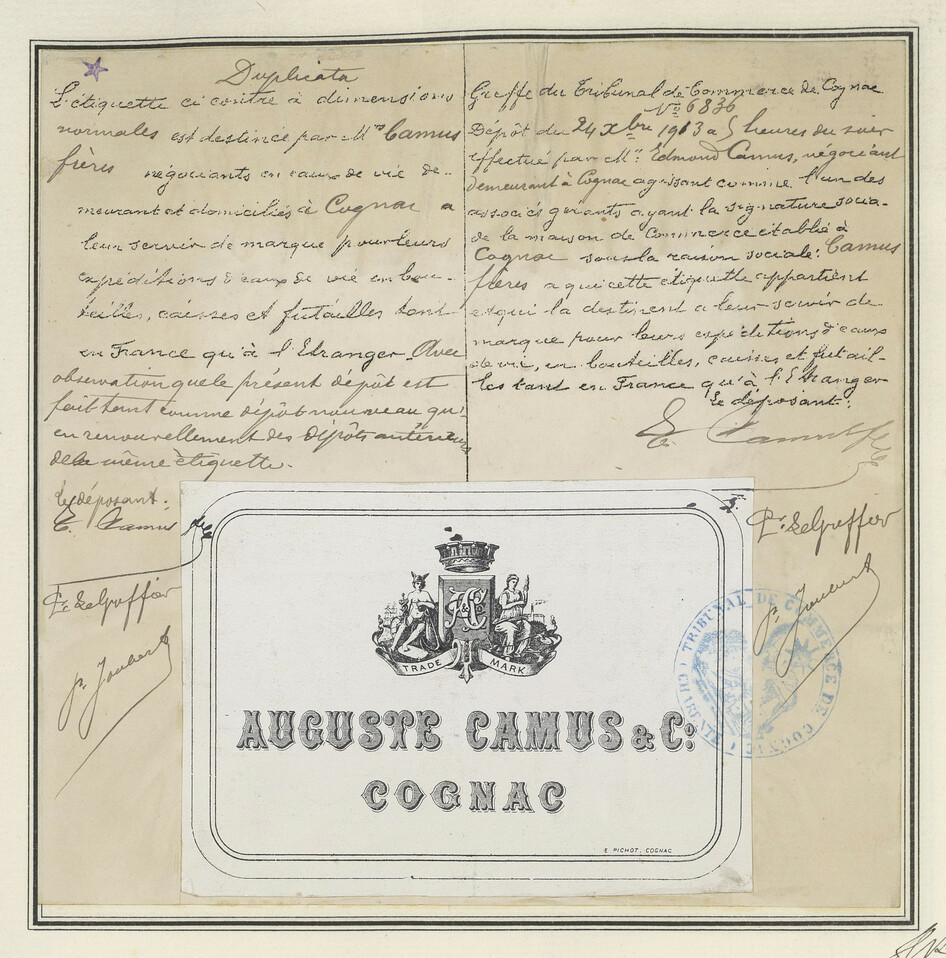 Duplicata
L'étiquette ci contre à dimensions
normales est destinée par Mrs Camus
frères négociants en eaux de vie de-
meurant et domiciliés à Cognac a
leur servir de marque pour leurs
expéditions d'eaux de vie en bou-
teilles, caisses et futailles tant
en France qu'à l'Etranger Avec
observation que le présent dépôt est
fait tant comme dépôt nouveau qu'
en renouvellement des dépôts antérieurs
de la même étiquette.
Le déposant:
E. Camus
Pr. Le Greffier
P. Joubert
Greffe du Tribunal de Commerce de Cognac
No 6836
Dépôt du 24 Xbre 1913 a 5 heures du soir
effectué par Mr. Edmond Camus, négociant
demeurant à Cognac agissant comme l'un des
associés gérants ayant la signature socia-
de la maison de Commerce établie à
Cognac sous la raison sociale: Camus
frères a qui cette étiquette appartient
et qui la destinent a leur servir de
marque pour leurs expéditions d'eaux
de vie, en bouteilles, caisses et futail-
les tant en France qu'à l'Etranger
Le déposant:
E. Camus
Pr. Le Greffier
P. Joubert
TRIBUNAL DE COMMERCE DE COGNAC (CHARENTE)
A C & Co
TRADE MARK
AUGUSTE CAMUS & Co.
COGNAC
E. PICHOT. COGNAC